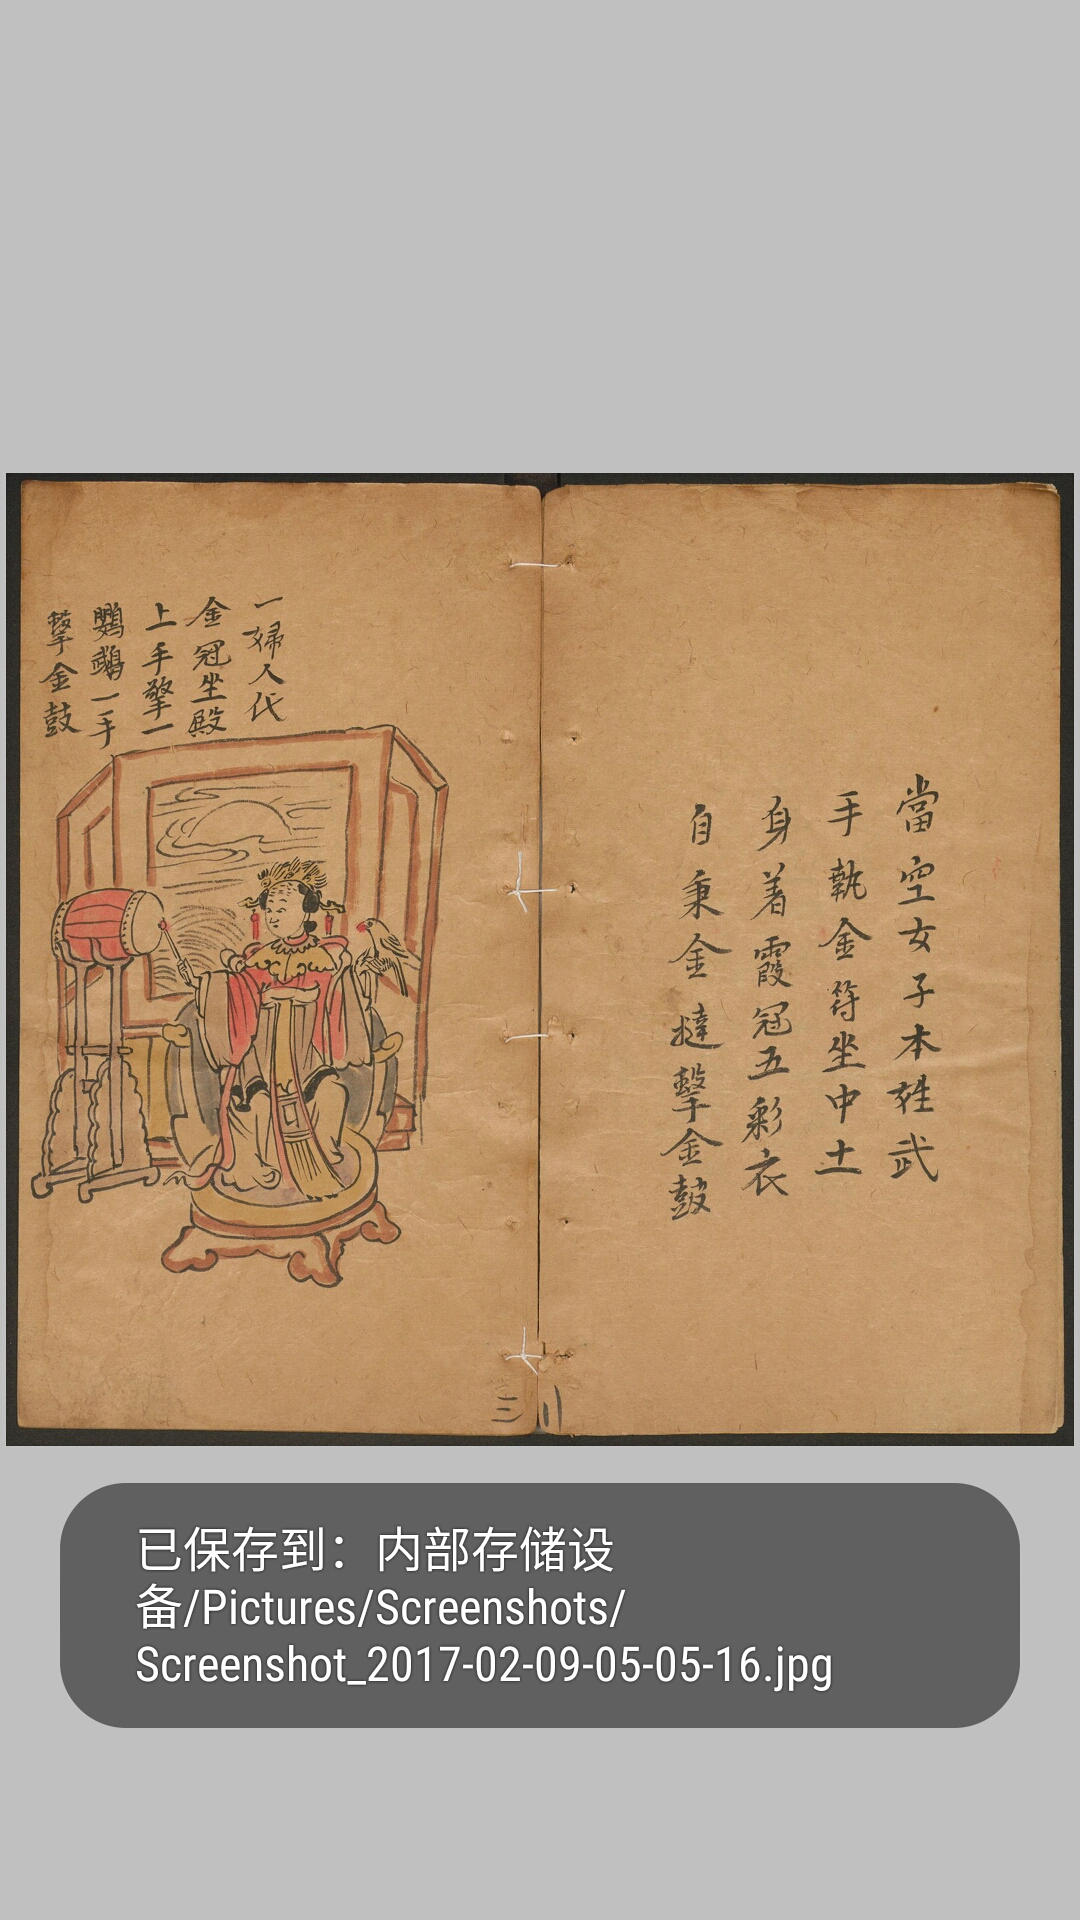 當空女子本姓武
手執金符坐中土
身着霞冠五彩衣
自秉金撻擊金鼓
一婦人代
金冠坐殿
上手擎一
鸚鵡一手
擊金鼓
三
已保存到：内部存储设
备/Pictures/Screenshots/
Screenshot_2017-02-09-05-05-16.jpg